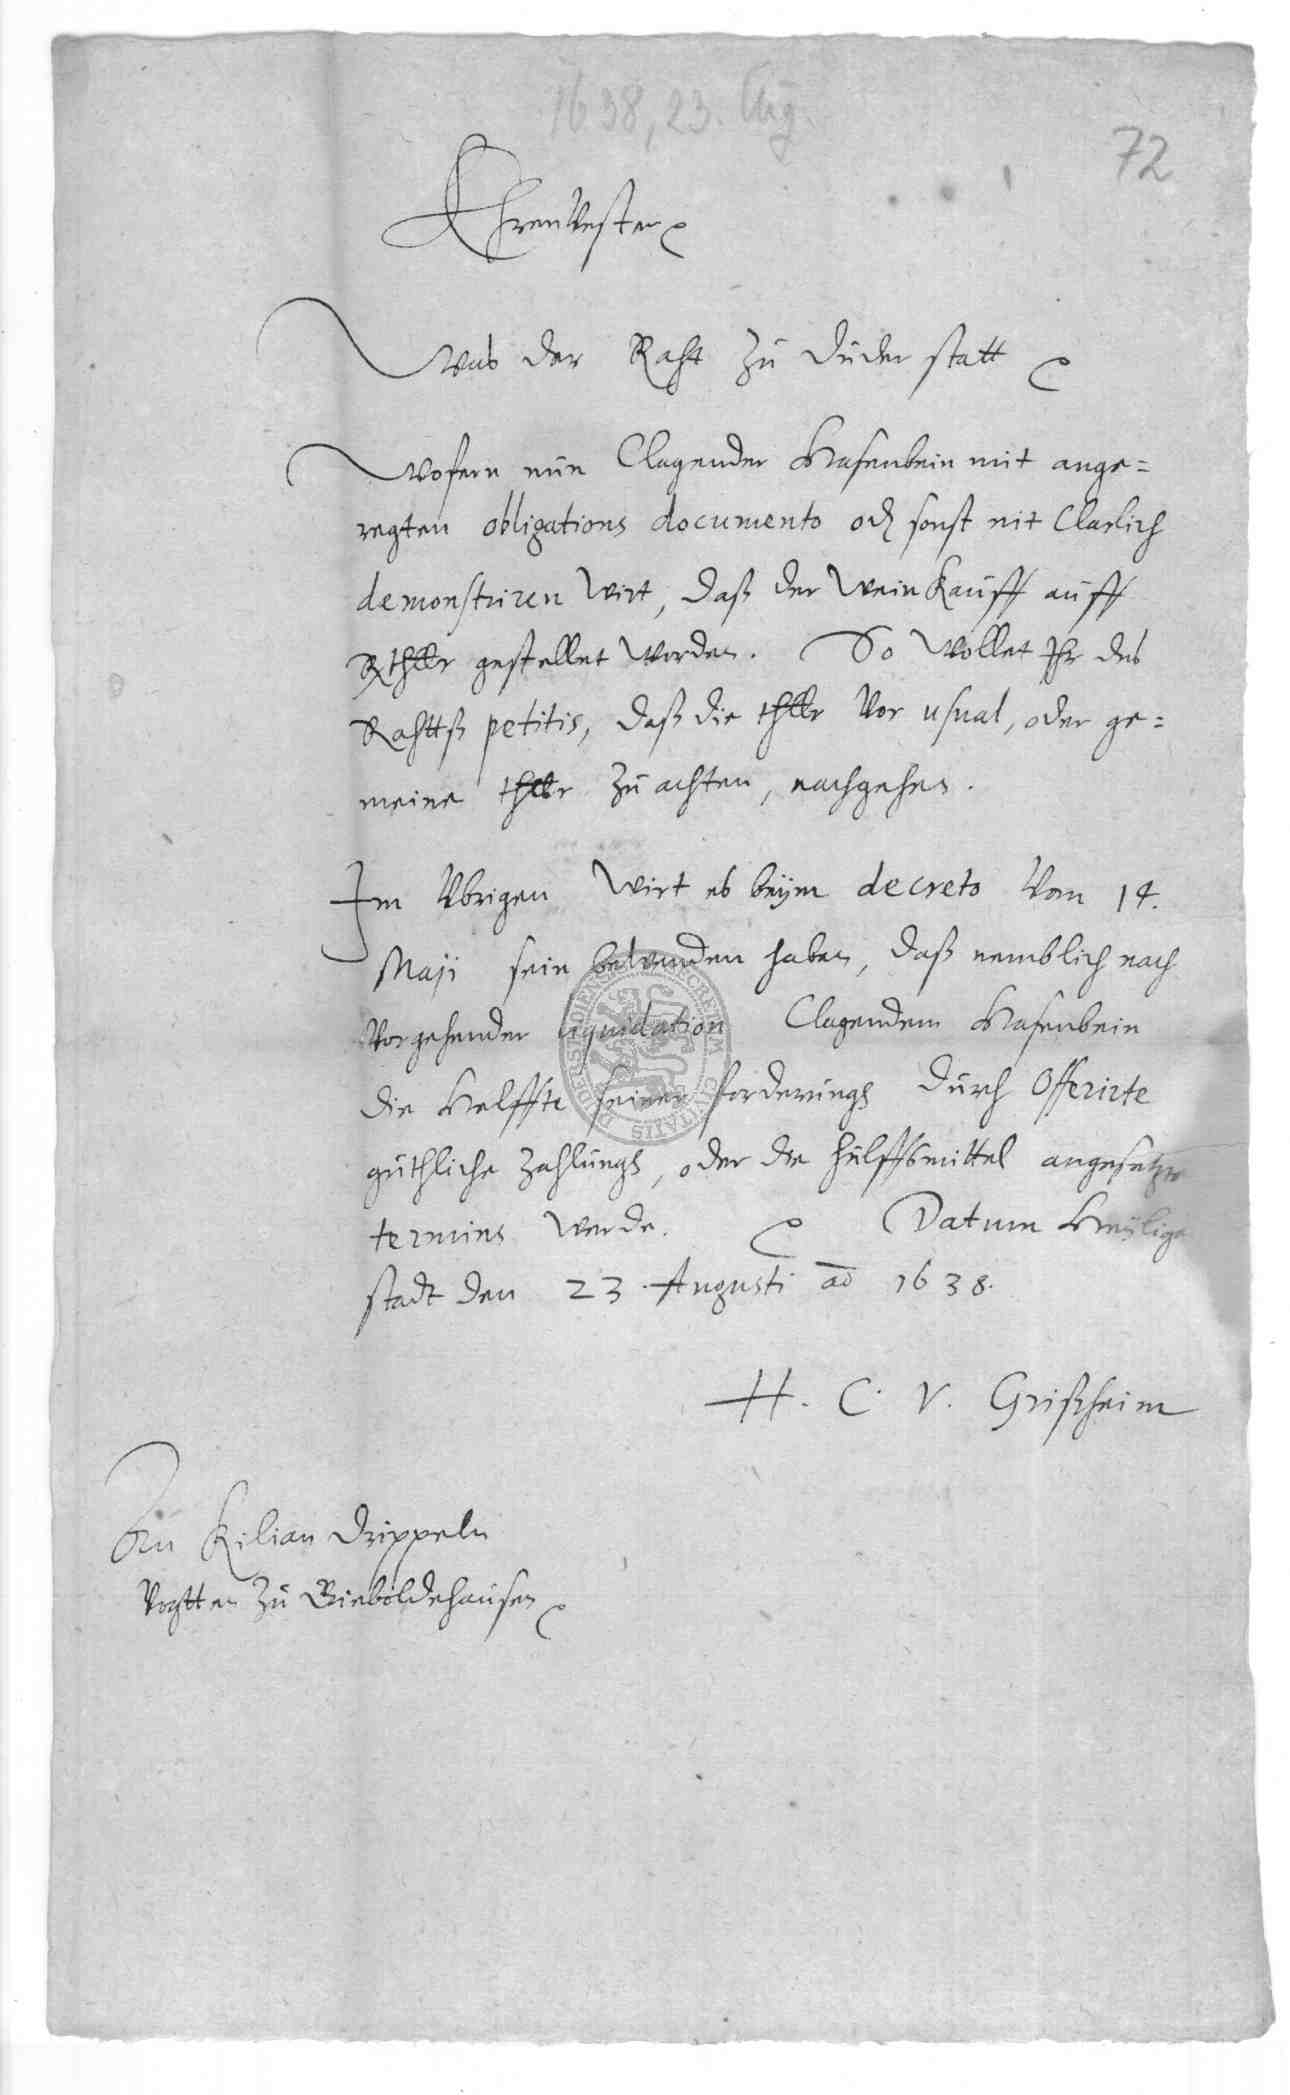 1638, 23. Aug.
72
EhrenVester
Was der Raht zu Duderstatt
Wofern nun Clagender Hasenbein mit ange=
regten obligations documento od sonst nit Clarlich
demonstriren wirt, daß der Wein Kauff auff
Rthlr gestellet worden. So wollet Ihr des
Rahtts petitis, daß die thlr vor usual, oder ge=
meine thlr zu achten, nachgehen.
Im Vbrigen wirt es beym decreto vom 14.
Maji sein bewenden haben, daß nemblich nach
vorgehender liquidation Clagendem Hasenbein
die Helffte seiner forderungh durch Offerirte
güthliche Zahlungh, oder die hülffsmittel angesetzte
termins werde. Datum Heylige
stadt den 23. Augusti ao 1638.
H. C. V. Grißheim
An Kilian Drippeln
Vogtten zu Gieboldehausen